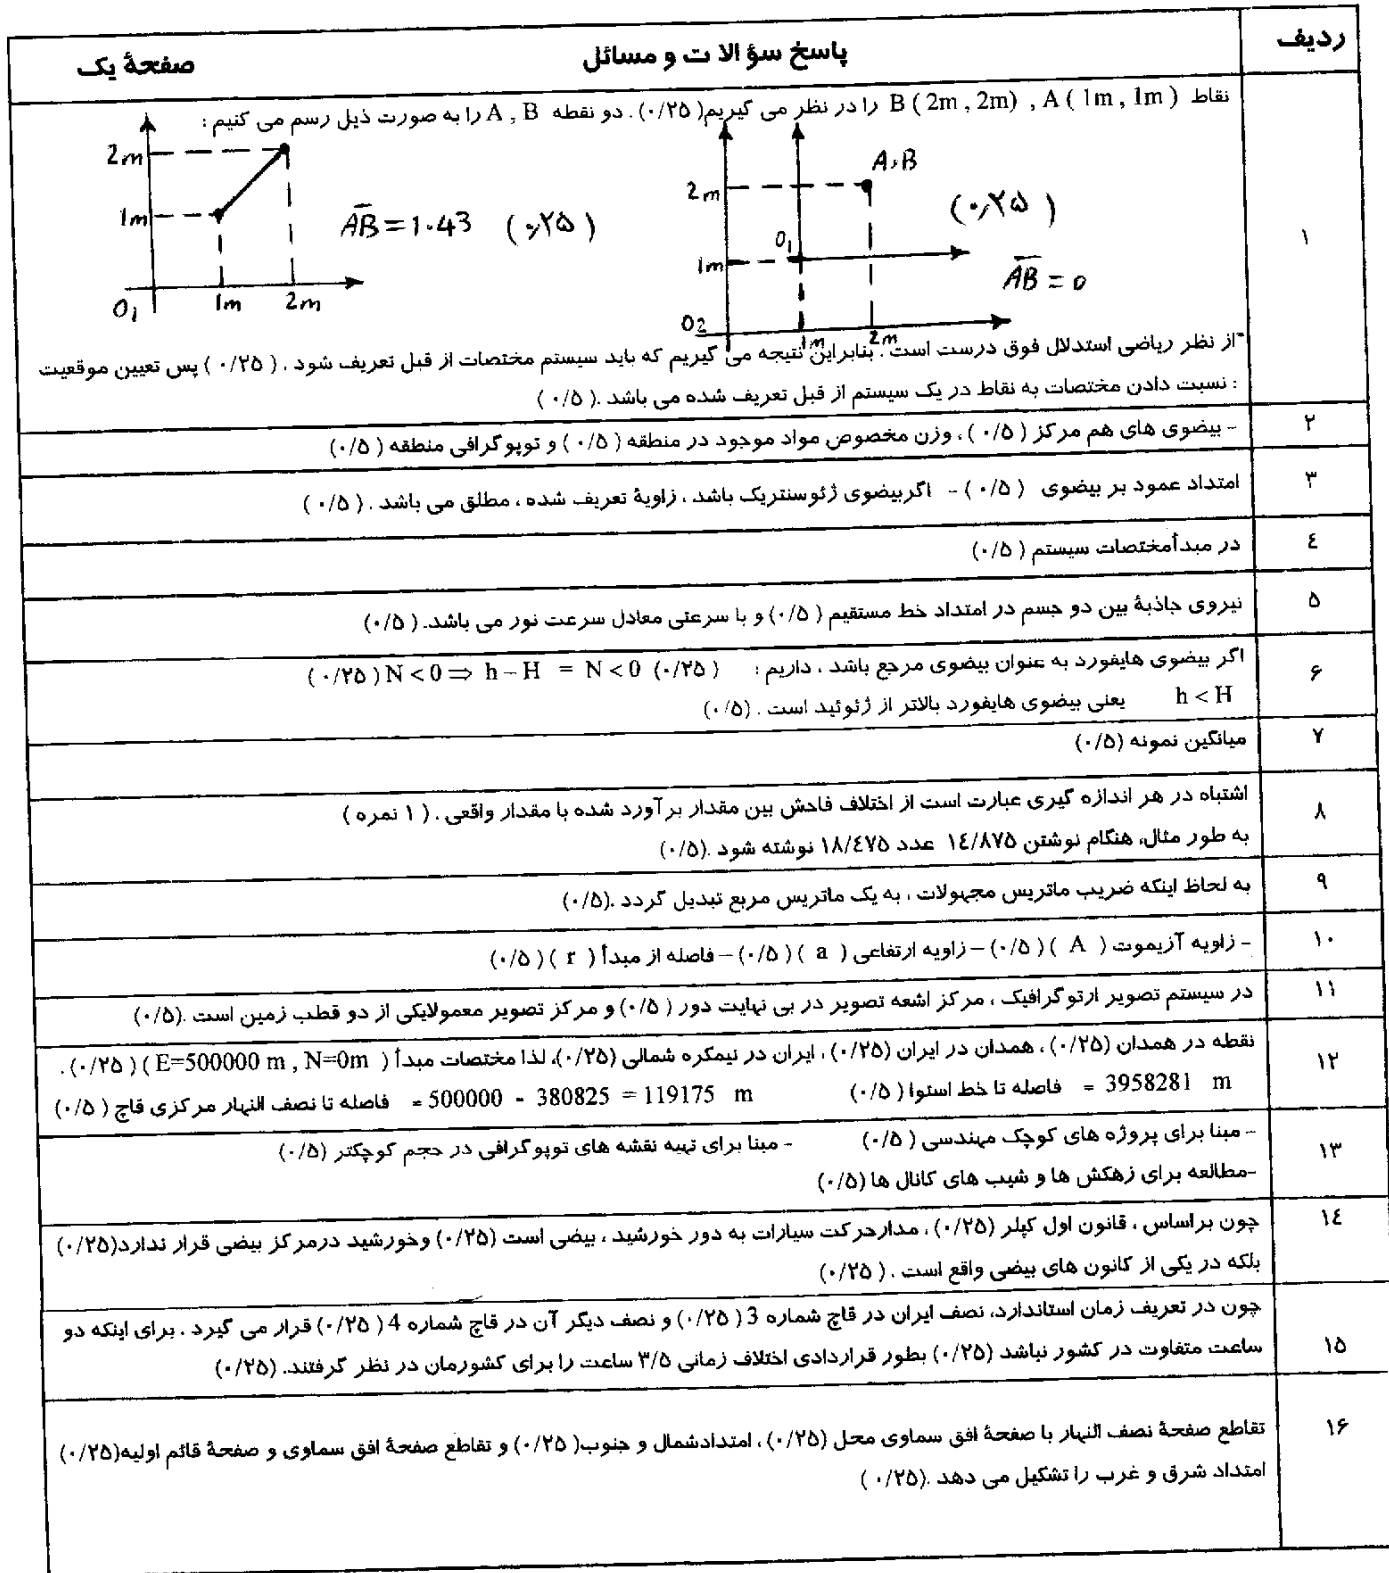 ردیف
پاسخ سؤالات و مسائل
صفحهٔ یک
۱
نقاط A ( 1m , 1m ) , B ( 2m , 2m ) را در نظر می گیریم( ۰/۲۵) . دو نقطه A , B را به صورت ذیل رسم می کنیم :
2m
1m
O₁
1m
2m
AB = 1.43 (۰/۲۵)
2m
1m
O₁
O₂
1m
2m
A,B
(۰/۲۵)
AB = 0
-از نظر ریاضی استدلال فوق درست است . بنابراین نتیجه می گیریم که باید سیستم مختصات از قبل تعریف شود . ( ۰/۲۵ ) پس تعیین موقعیت
: نسبت دادن مختصات به نقاط در یک سیستم از قبل تعریف شده می باشد .( ۰/۵ )
۲
- بیضوی های هم مرکز ( ۰/۵ ) ، وزن مخصوص مواد موجود در منطقه ( ۰/۵ ) و توپوگرافی منطقه ( ۰/۵)
۳
امتداد عمود بر بیضوی ( ۰/۵ ) - اگربیضوی ژئوسنتریک باشد ، زاویهٔ تعریف شده ، مطلق می باشد . ( ۰/۵ )
٤
در مبدأمختصات سیستم ( ۰/۵)
۵
نیروی جاذبهٔ بین دو جسم در امتداد خط مستقیم ( ۰/۵) و با سرعتی معادل سرعت نور می باشد. ( ۰/۵)
۶
اگر بیضوی هایفورد به عنوان بیضوی مرجع باشد ، داریم : ( ۰/۲۵ ) N < 0 ⇒ h – H = N < 0 (۰/۲۵)
h < H یعنی بیضوی هایفورد بالاتر از ژئوئید است . (۰/۵)
۷
میانگین نمونه (۰/۵)
۸
اشتباه در هر اندازه گیری عبارت است از اختلاف فاحش بین مقدار برآورد شده با مقدار واقعی . ( ۱ نمره )
به طور مثال، هنگام نوشتن ۱٤/۸۷۵ عدد ۱۸/٤۷۵ نوشته شود .(۰/۵)
۹
به لحاظ اینکه ضریب ماتریس مجهولات ، به یک ماتریس مربع تبدیل گردد .(۰/۵)
۱۰
- زاویه آزیموت ( A ) ( ۰/۵) – زاویه ارتفاعی ( a ) ( ۰/۵) – فاصله از مبدأ ( r ) ( ۰/۵)
۱۱
در سیستم تصویر ارتوگرافیک ، مرکز اشعه تصویر در بی نهایت دور ( ۰/۵) و مرکز تصویر معمولایکی از دو قطب زمین است .(۰/۵)
۱۲
نقطه در همدان (۰/۲۵) ، همدان در ایران (۰/۲۵) ، ایران در نیمکره شمالی (۰/۲۵)، لذا مختصات مبدأ ( E=500000 m , N=0m ) ( ۰/۲۵) .
3958281 m = فاصله تا خط استوا ( ۰/۵) 500000 - 380825 = 119175 m = فاصله تا نصف النهار مرکزی قاچ ( ۰/۵)
۱۳
- مبنا برای پروژه های کوچک مهندسی ( ۰/۵) - مبنا برای تهیه نقشه های توپوگرافی در حجم کوچکتر (۰/۵)
-مطالعه برای زهکش ها و شیب های کانال ها (۰/۵)
۱٤
چون براساس ، قانون اول کپلر (۰/۲۵) ، مدارحرکت سیارات به دور خورشید ، بیضی است (۰/۲۵) وخورشید درمرکز بیضی قرار ندارد(۰/۲۵)
بلکه در یکی از کانون های بیضی واقع است . ( ۰/۲۵)
۱۵
چون در تعریف زمان استاندارد، نصف ایران در قاچ شماره 3 ( ۰/۲۵) و نصف دیگر آن در قاچ شماره 4 ( ۰/۲۵) قرار می گیرد . برای اینکه دو
ساعت متفاوت در کشور نباشد (۰/۲۵) بطور قراردادی اختلاف زمانی ۳/۵ ساعت را برای کشورمان در نظر گرفتند. (۰/۲۵)
۱۶
تقاطع صفحهٔ نصف النهار با صفحهٔ افق سماوی محل (۰/۲۵) ، امتدادشمال و جنوب( ۰/۲۵) و تقاطع صفحهٔ افق سماوی و صفحهٔ قائم اولیه(۰/۲۵)
امتداد شرق و غرب را تشکیل می دهد .(۰/۲۵ )